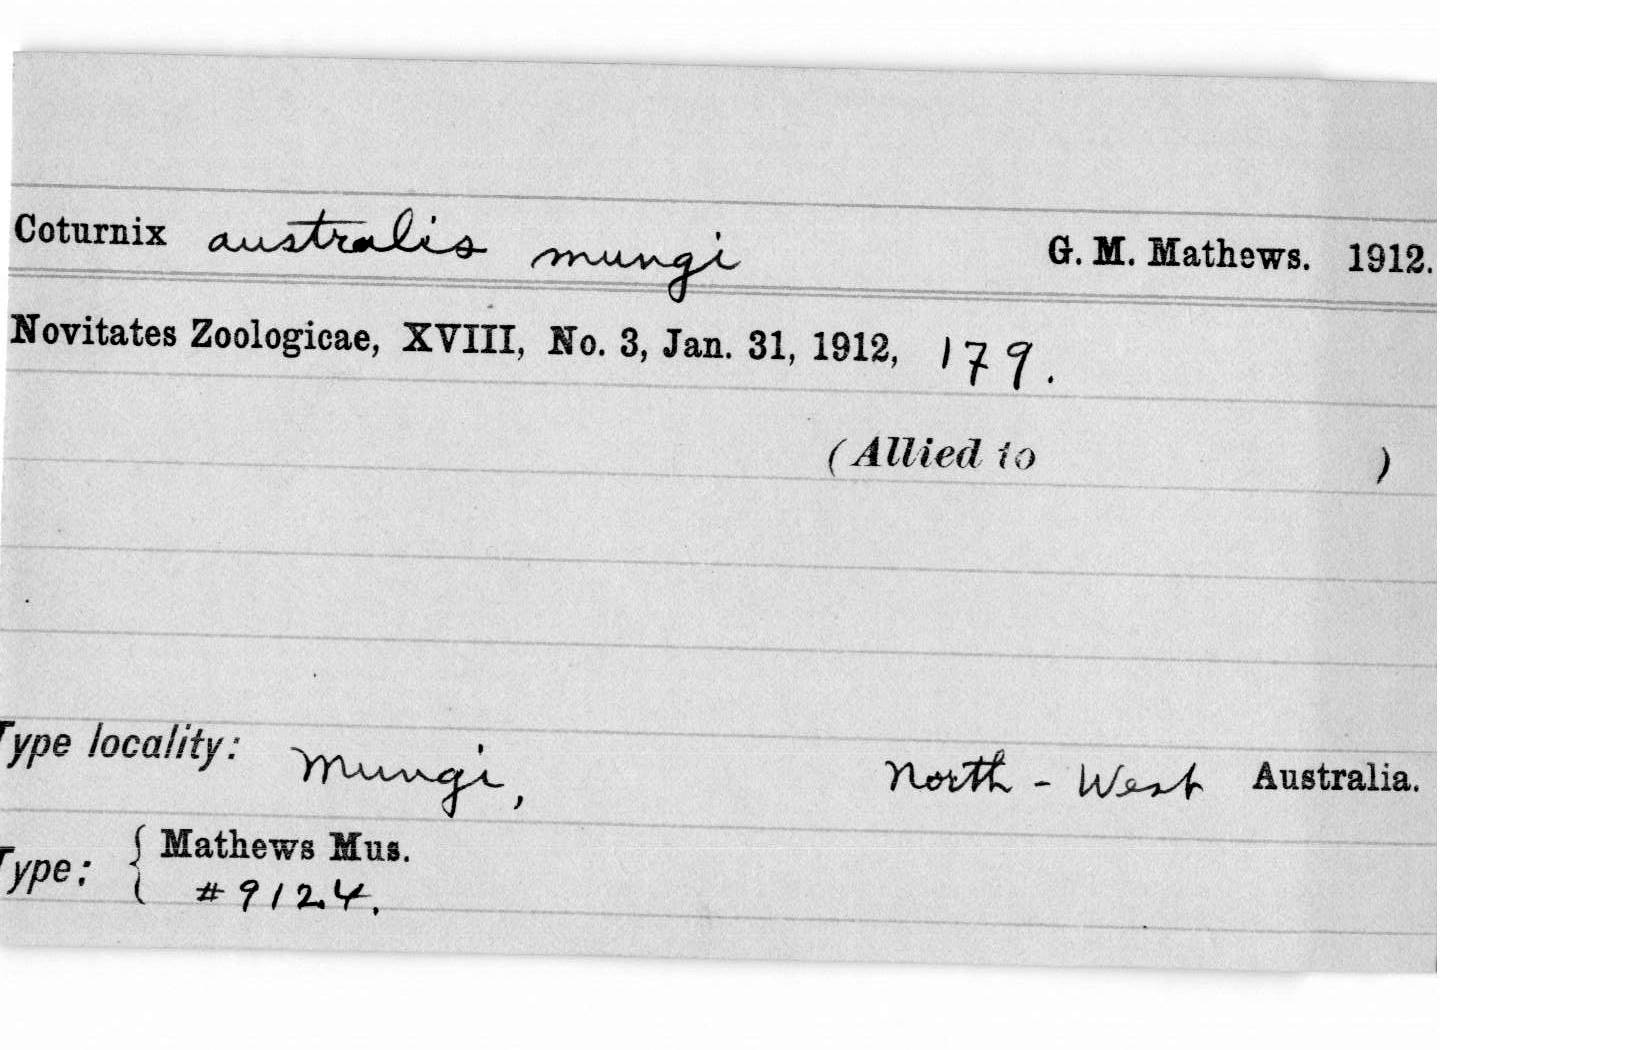 Coturnix australis mungi G. M. Mathews. 1912.
Novitates Zoologicae, XVIII, No. 3, Jan. 31, 1912, 179.
(Allied to )
Type locality: Mungi, North-West Australia.
Type: { Mathews Mus.
#9124.